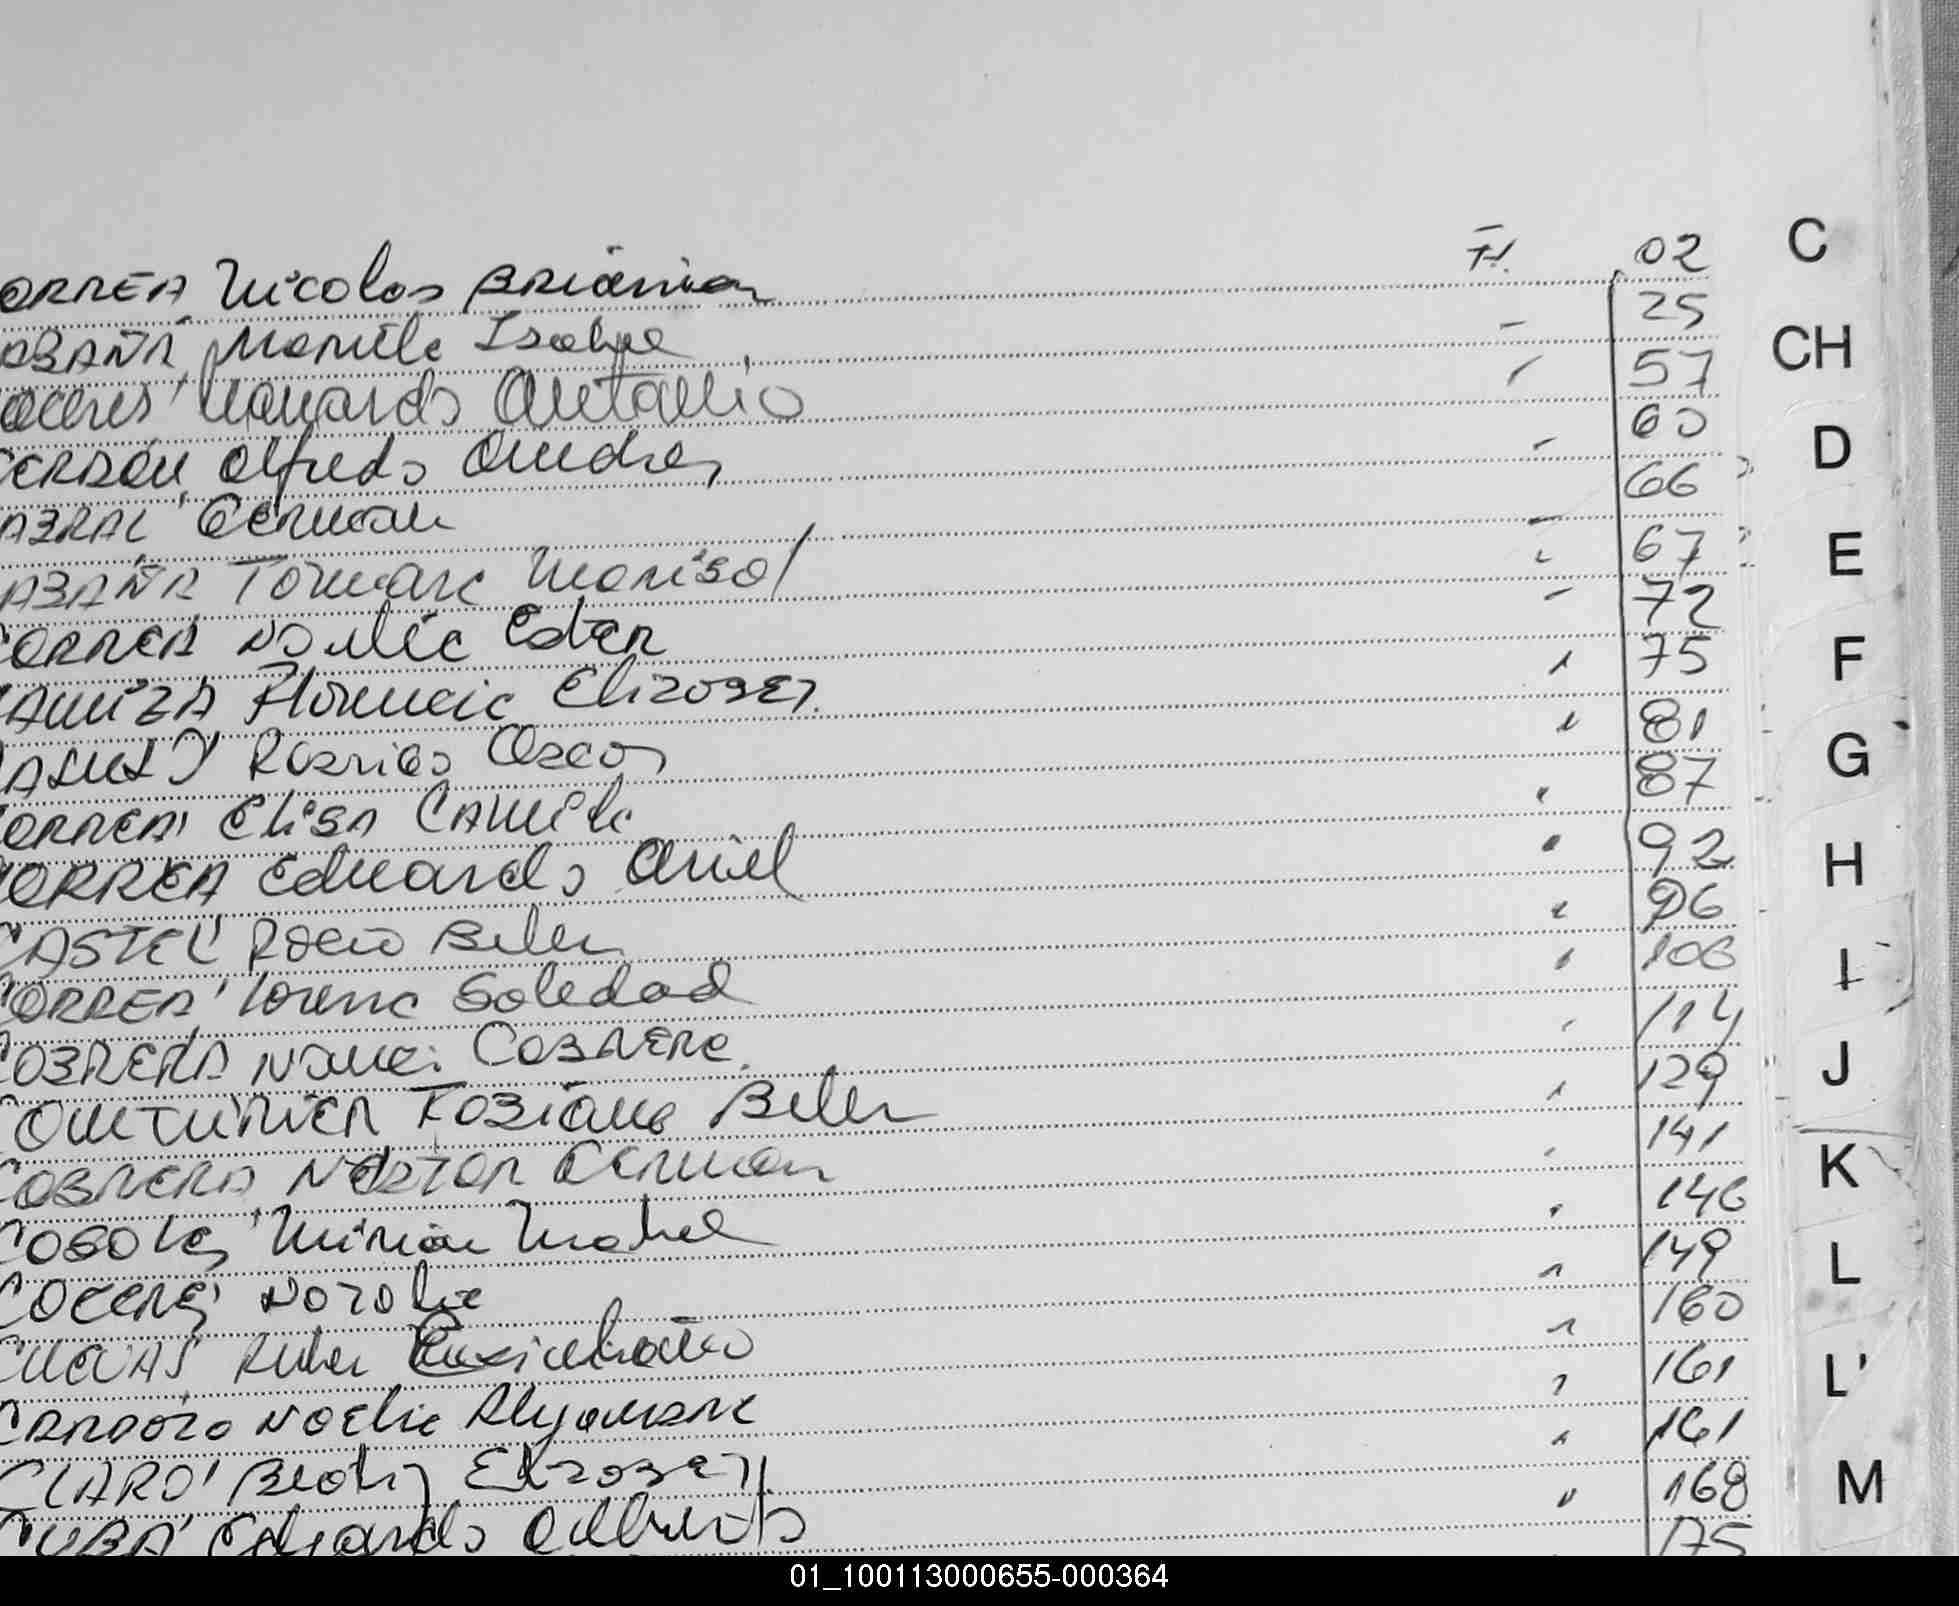 ORREA Nicolas Brian F. 02
ABAÑA Mariela Isabel 25
Antonio 57
CERDÁN Alfredo Andres 60
ABRAL German 66
ABAÑA Tamara Marisol 67
CORREA Noelie Ester 72
Florencia Elizabet 75
Rodrigo Oscar 81
CORREA Elisa Camila 87
CORREA Eduardo Ariel 92
CASTEL Rocio Belen 96
CORREA Lorena Soledad 106
CABRERA Nanci Cabrera 114
COUTURIER Fabiana Belen 129
CABRERA Nestor German 141
Miriam Mabel 146
Natalia 149
CUEVAS Ruben Maximiliano 160
CARDOZO Noelia Alejandra 161
CLARO Beatriz Elizabet 161
CUBA Eduardo Alberto 168
175
C
CH
D
E
F
G
H
I
J
K
L
L'
M
01_100113000655-000364